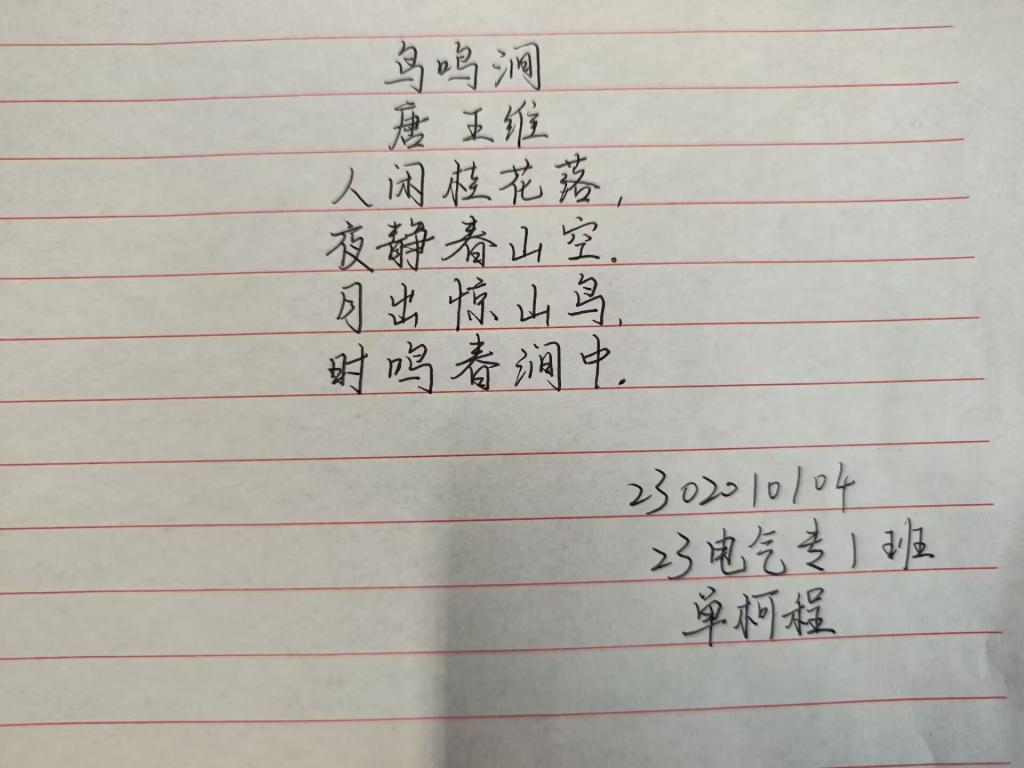 鸟鸣涧
唐 王维
人闲桂花落,
夜静春山空.
月出惊山鸟,
时鸣春涧中.
2302010104
23电气专1班
单柯程